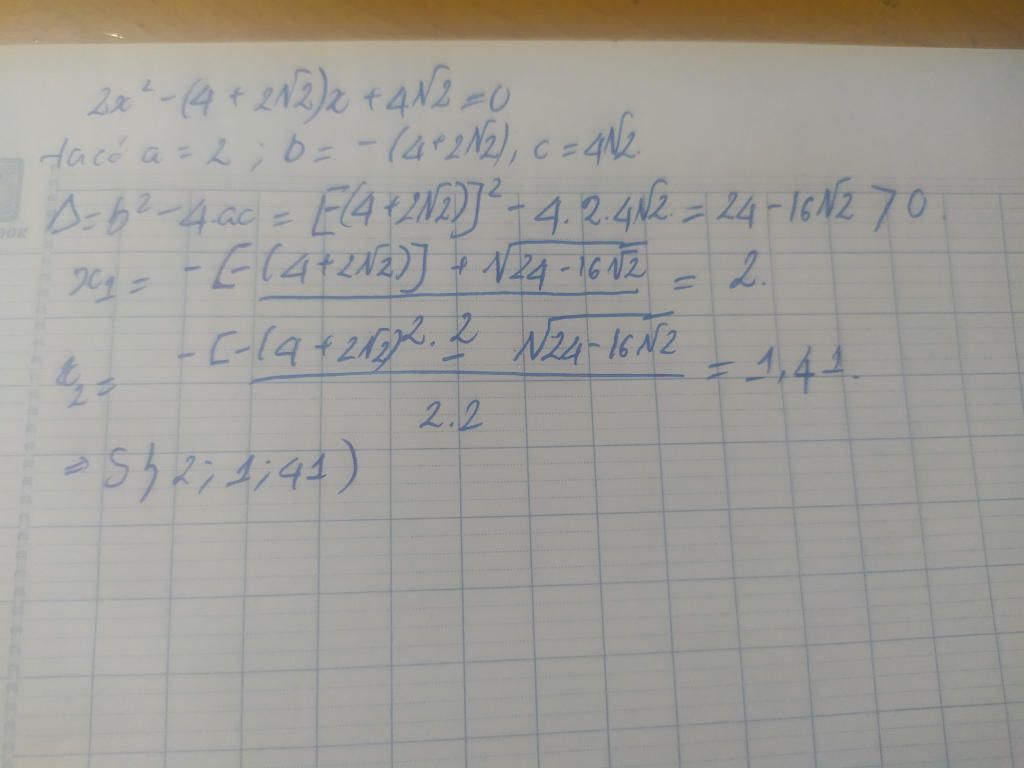 2x² - (4 + 2√2)x + 4√2 = 0
ta có a = 2 ; b = - (4+2√2), c = 4√2.
Δ = b² - 4ac = [-(4+2√2)]² - 4.2.4√2 = 24 - 16√2 > 0.
x₁ = -[-(4+2√2)] + √24-16√2 = 2.
2.2
x₂ = -[-(4+2√2) - √24-16√2 = 1,41.
2.2
⇒ S { 2; 1; 41 )